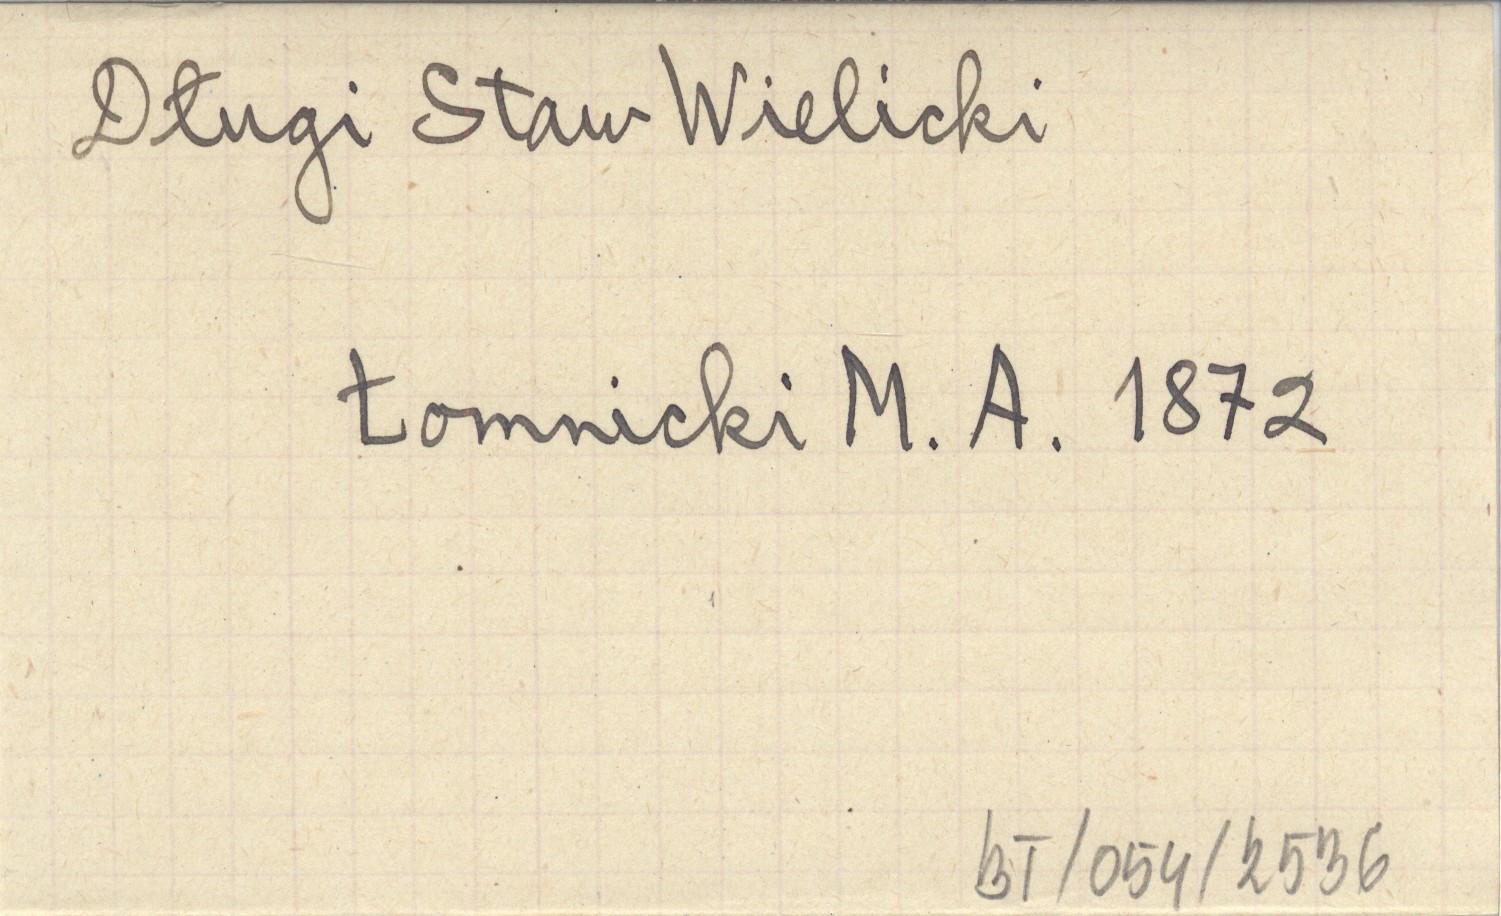 Długi Staw Wielicki
Łomnicki M. A. 1872
BT/054/2536